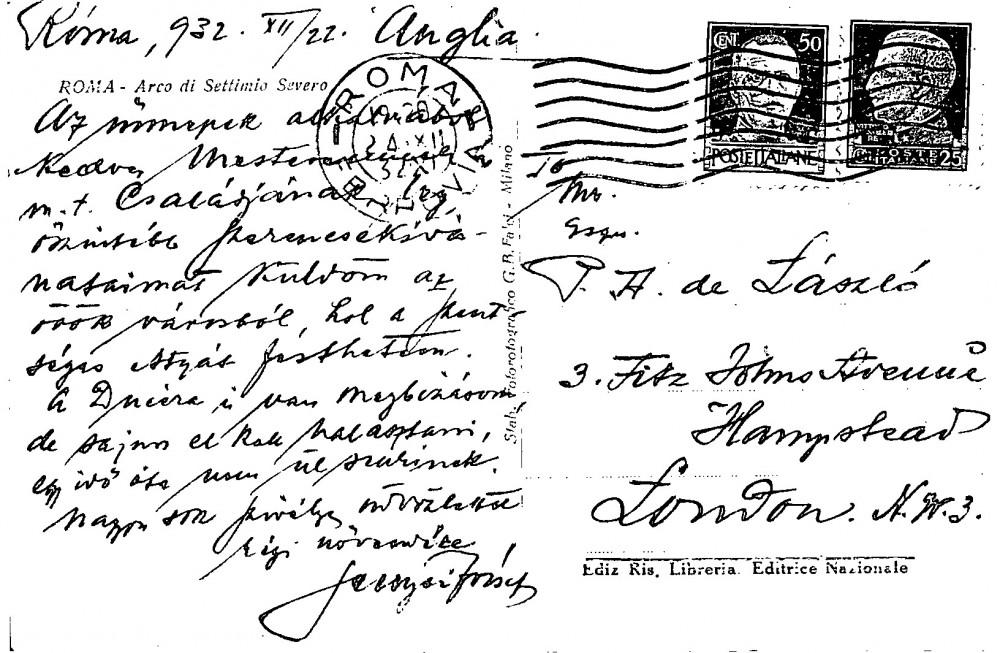 Róma, 932. XII/22. Anglia.
ROMA - Arco di Settimio Severo
Az ünnepek alkalmából
kedves Mesteremnek
m.t. Családjának leg-
őszintébb szerencsekívá-
nataimat küldöm az
örök városból, hol a Szent-
séges Atyát festhetem.
A Ducera is van megbizásom
de sajnos el kell halasztani,
egy idő óta nem ül senkinek.
Nagyon sok szivélyes üdvözlettel
régi növendéke
József
ROMA FERROVIA
24 XII
CENT. 50
POSTE ITALIANE
25
To
Mr.
Esqu.
P. A. de László
3. Fitz Johns Avenue
Hampstead
London. N.W.3.
Stab. Fotorotografico G.B. Falci - Milano
Ediz Ris. Libreria Editrice Nazionale